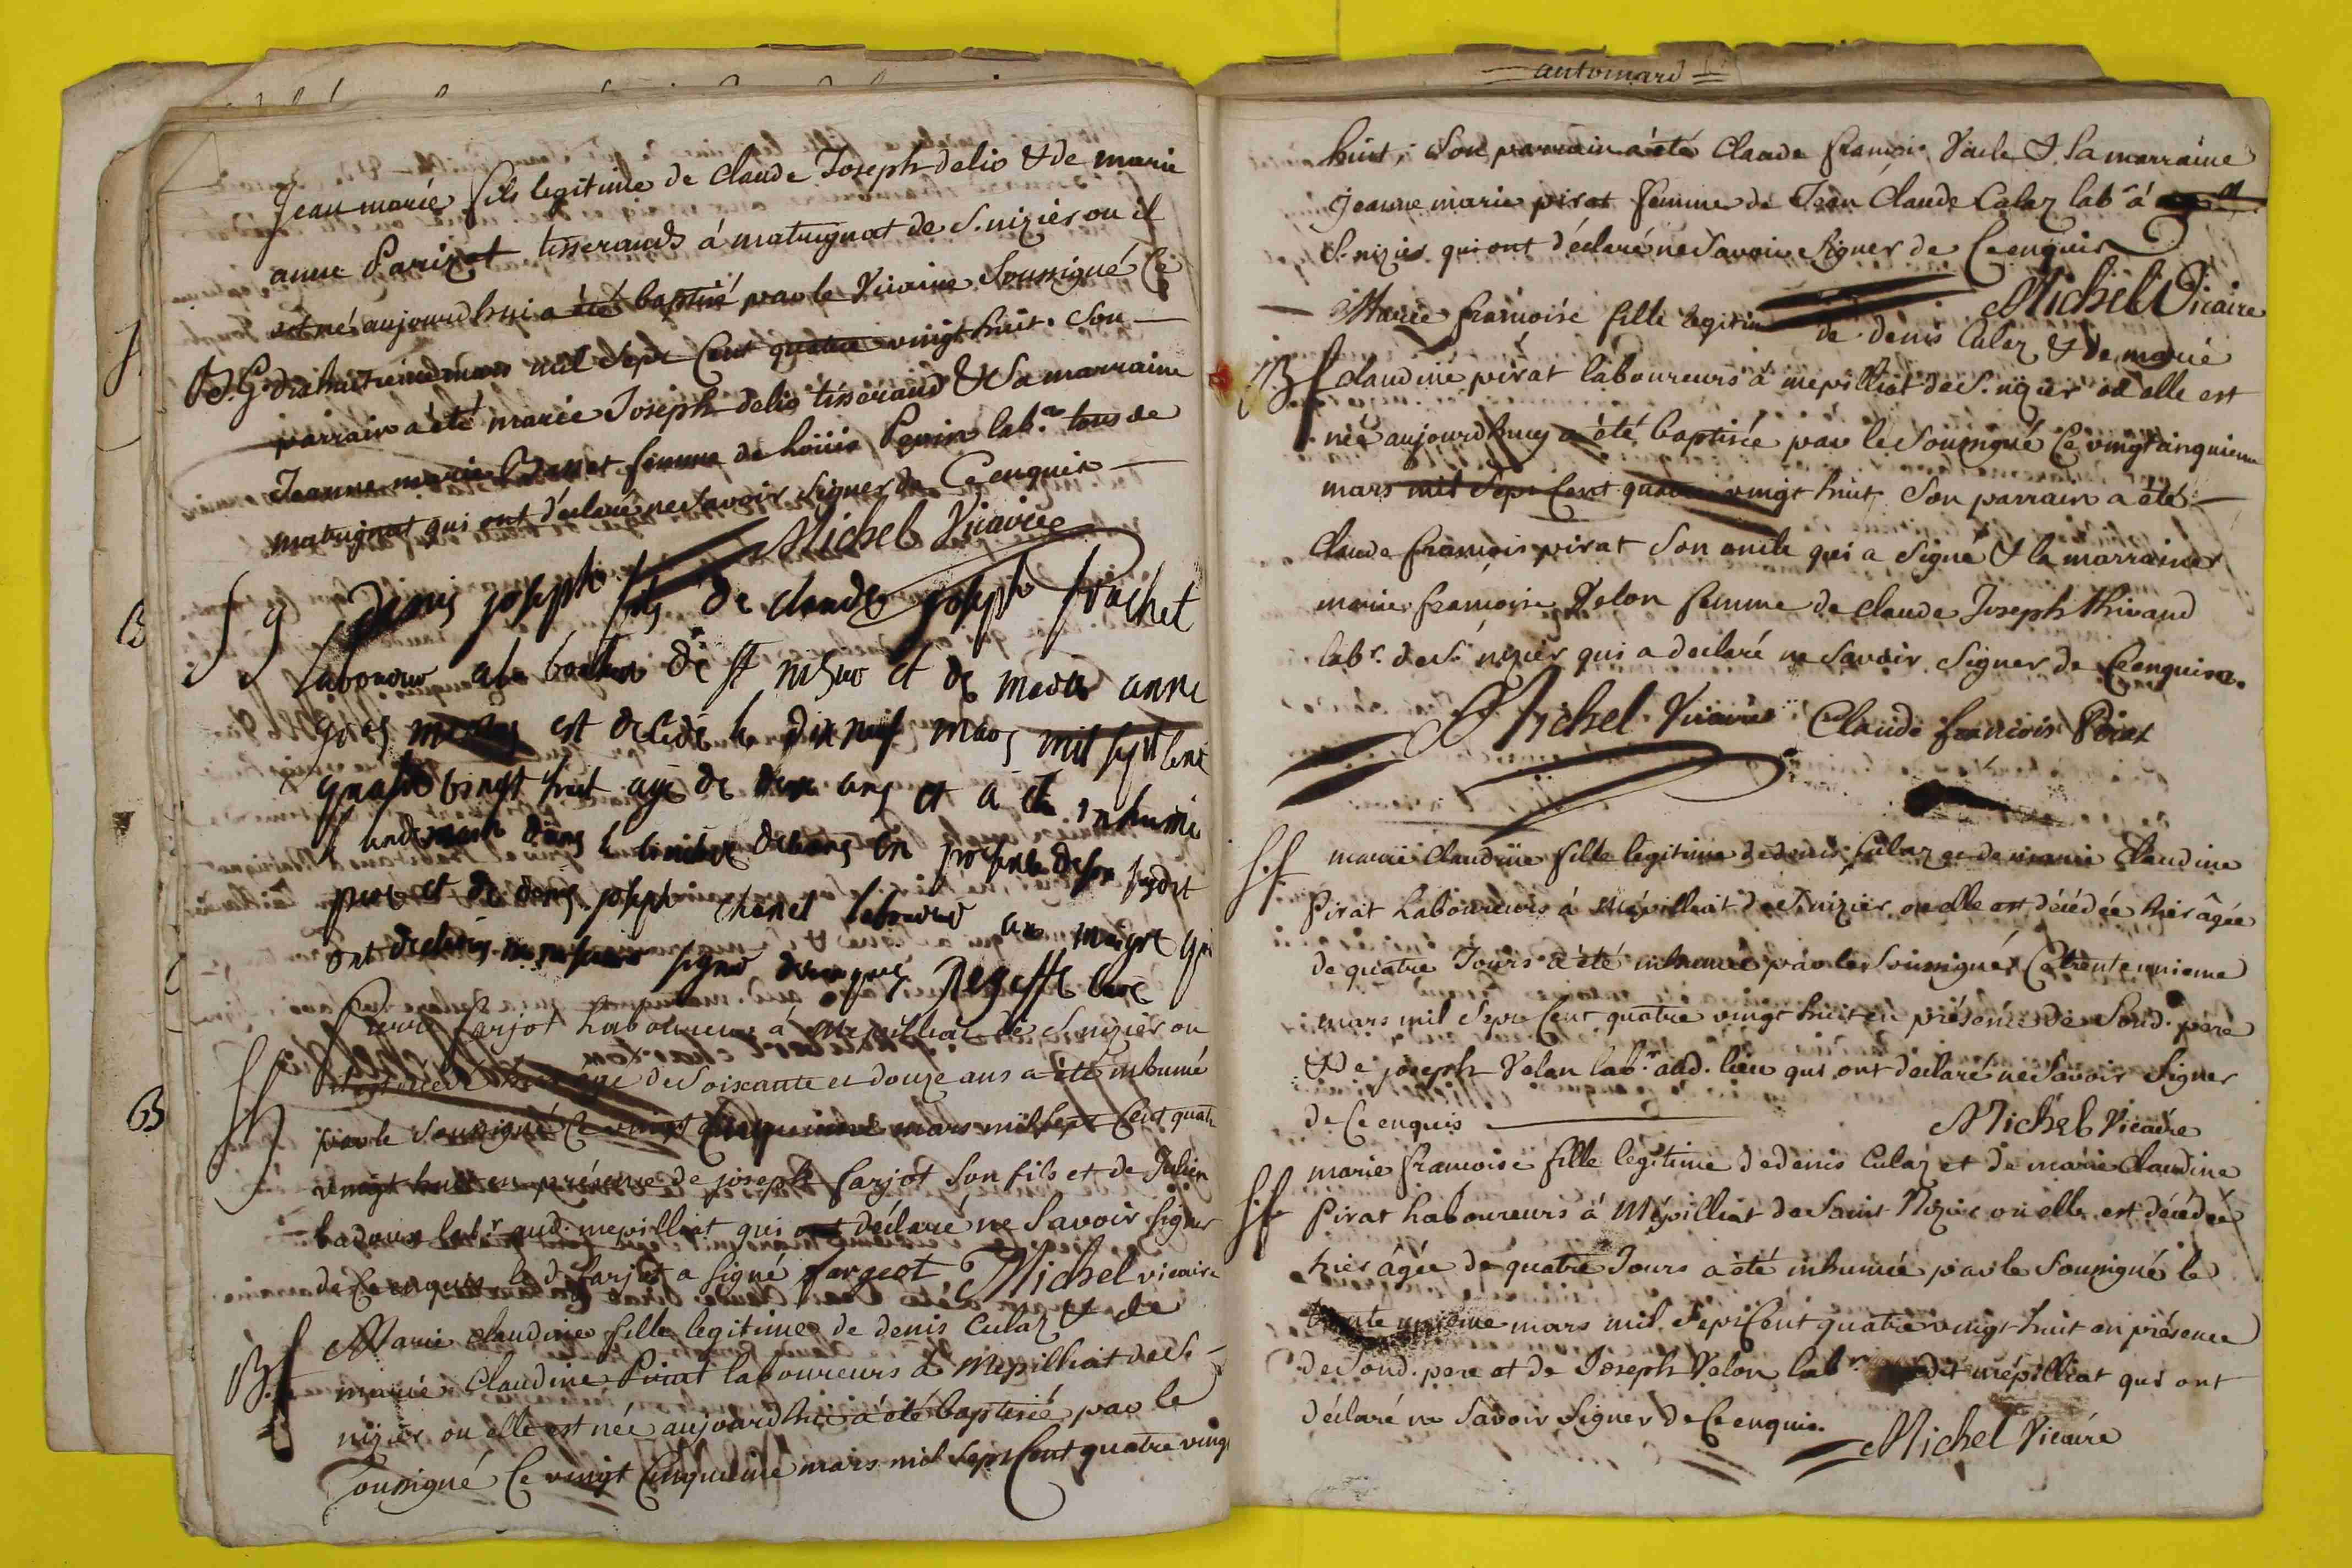 Jean marie fils legitime de Claude Joseph delis & de marie
anne Parizot tisserands á matrignat de S. nizier ou il
est né aujourdhui a été baptisé par le Vicaire Soussigné Ce
B. G. dixhuitieme mars mil Sept Cent quatre vingt huit. Son
parrain a été marie Joseph delis tisserand & Sa marraine
Jeanne marie femme de Loüis labr. tous de
matrignat qui ont déclaré ne Savoir Signer de Ce enquis
Michel Vicaire
B
S g denis joseph fils de claude joseph frachet
laboureur a la de st nisier et de marie anne
est decede le dix neuf mars mil sept cent
quatre vingt huit agé de deux ans et a ete inhumé
en presence de son susdit
pere et de denis joseph chanel laboureur au qui
ont declarés ne savoir signer de enquis curé
Pierre farjot Laboureur á Mepilliat de S. nizier ou
agé de Soixante et douze ans a été inhumé
B
par le Soussigné Ce vingt Cinquieme mars mil Sept Cent quatre
vingt huit en présence de joseph farjot Son fils et de Julien
labr. aud. mepilliat qui ont déclaré ne Savoir Signer
de Ce enquis le d. farjot a Signé fargeot Michel vicaire
B. f Marie Claudine fille legitime de denis Culaz & de
marie Claudine Pirat laboureurs á Mepilliat de S.
nizier ou elle est née aujourdhui a été baptisée par le
Soussigné Ce vingt Cinquieme mars mil Sept Cent quatre vingt
antoinard
huit, Son parrain a été Claude francois & Sa marraine
Jeanne marie pirat femme de Jean Claude Calaz labr. á
S. nizier qui ont déclaré ne Savoir Signer de Ce enquis
Michel Vicaire
Marie francoise fille legitime de denis Culaz & de marie
B f claudine pirat laboureurs á mepilliat de S. nizier où elle est
née aujourdhuy a été baptisée par le Soussigné Ce vingt cinquieme
mars mil Sept Cent quatre vingt huit, Son parrain a été
Claude francois pirat Son oncle qui a Signé & la marraine
marie francoise Velon femme de Claude Joseph thivaud
labr. de S. nizier qui a declaré ne Savoir Signer de Ce enquise.
Michel Vicaire Claude francois Pirat
S.f. marie Claudine fille legitime de denis Culaz et de marie Claudine
Pirat Laboureurs á Mépilliat de St nizier ou elle est décédée hier âgée
de quatre Jours a été inhumée par le Soussigné Ce trente unieme
mars mil Sept Cent quatre vingt huit en présence de Sond. pere
& de joseph Velon labr. aud. lieu qui ont declaré ne Savoir Signer
de Ce enquis
Michel Vicaire
marie francoise fille legitime de denis Culaz et de marie Claudine
S.f. Pirat Laboureurs á Mépilliat de Saint Nizier où elle est décédée
hier âgée de quatre Jours a été inhumée par le Soussigné le
trente unieme mars mil Sept Cent quatre vingt huit en présence
de Sond. pere et de Joseph Velon labr. dit mépilliat qui ont
déclaré ne Savoir Signer de Ce enquis.
Michel Vicaire